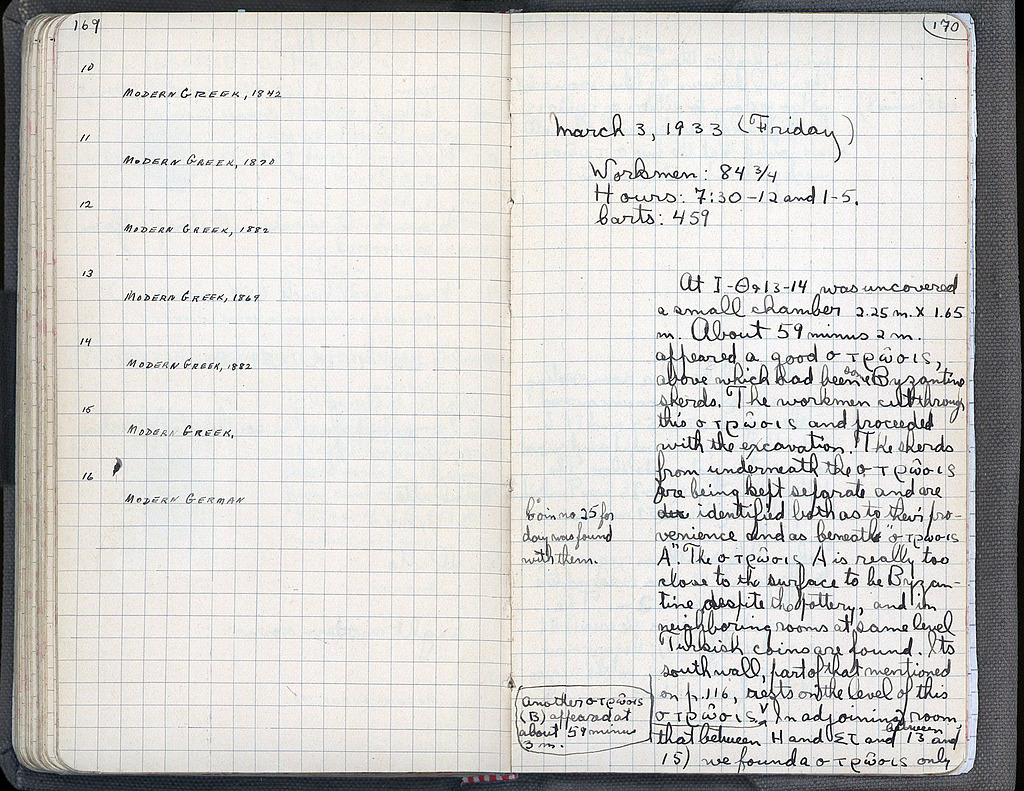 169
10
MODERN GREEK, 1842
11
MODERN GREEK, 1870
12
MODERN GREEK, 1882
13
MODERN GREEK, 1869
14
MODERN GREEK, 1882
15
MODERN GREEK.
16
MODERN GERMAN
170
March 3, 1933 (Friday)
Workmen: 84 3/4
Hours: 7:30-12 and 1-5.
Carts: 459
At I-Θ & 13-14 was uncovered
a small chamber 2.25 m. x 1.65
m. About 59 minus 2 m.
appeared a good στρῶσις,
above which had been some Byzantine
sherds. The workmen cut through
this στρῶσις and proceeded
with the excavation. The sherds
from underneath the στρῶσις
are being kept separate and are
identified both as to their pro-
venience and as beneath "στρῶσις
A". The στρῶσις A is really too
close to the surface to be Byzan-
tine, despite the pottery, and in
neighboring rooms at same level
Turkish coins are found. Its
south wall, part of that mentioned
on p. 116, rests on the level of this
στρῶσις. In adjoining room,
that between H and ΣΤ and between 13 and
15) we found a στρῶσις only
Coin no 25 for
day was found
with them.
Another στρῶσις
(B) appeared at
about 59 minus
3 m.